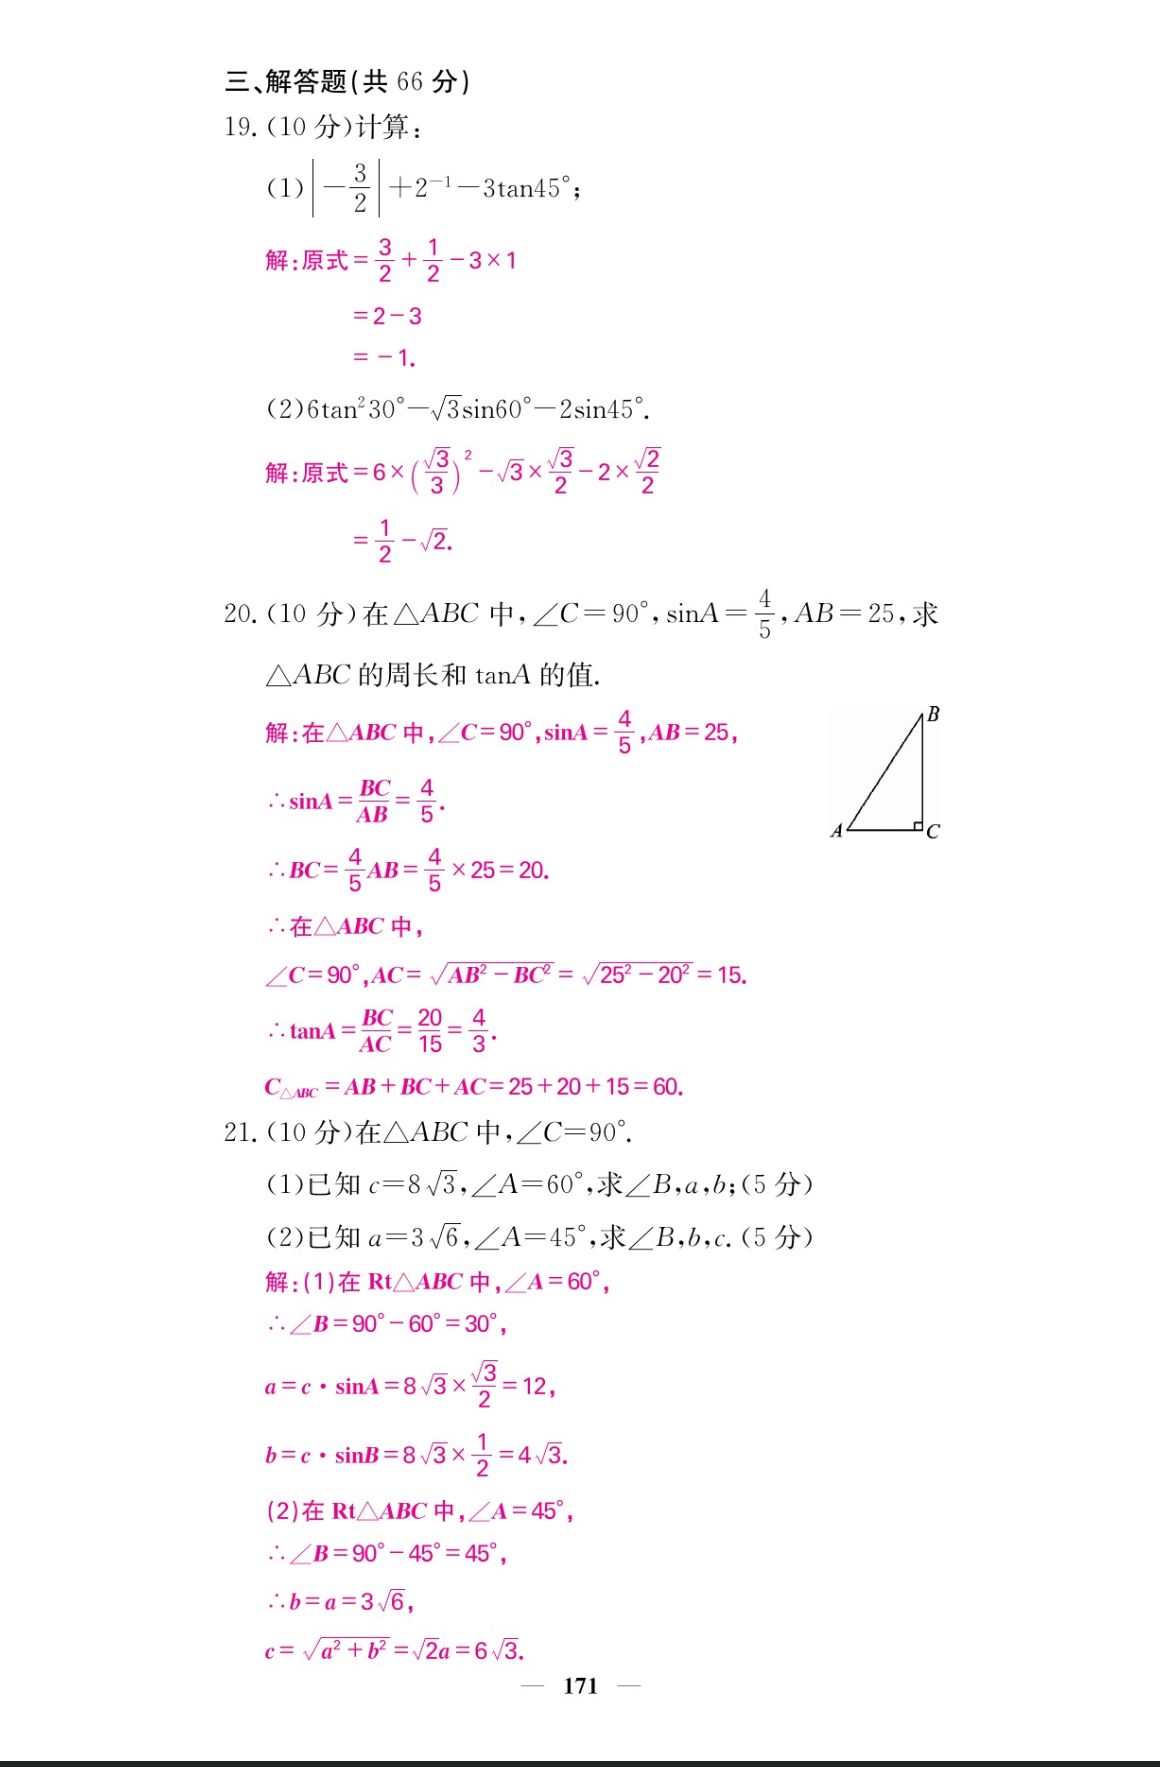 三、解答题(共 66 分)
19. (10 分)计算:
(1)|－3/2|＋2⁻¹－3tan45°;
解:原式＝3/2＋1/2－3×1
＝2－3
＝－1.
(2)6tan²30°－√3sin60°－2sin45°.
解:原式＝6×(√3/3)²－√3×√3/2－2×√2/2
＝1/2－√2.
20. (10 分)在△ABC 中,∠C＝90°,sinA＝4/5,AB＝25,求
△ABC 的周长和 tanA 的值.
解:在△ABC 中,∠C＝90°,sinA＝4/5,AB＝25,
∴sinA＝BC/AB＝4/5.
∴BC＝4/5AB＝4/5×25＝20.
∴在△ABC 中,
∠C＝90°,AC＝√(AB²－BC²)＝√(25²－20²)＝15.
∴tanA＝BC/AC＝20/15＝4/3.
C△ABC＝AB＋BC＋AC＝25＋20＋15＝60.
B
A
C
21. (10 分)在△ABC 中,∠C＝90°.
(1)已知 c＝8√3,∠A＝60°,求∠B,a,b;(5 分)
(2)已知 a＝3√6,∠A＝45°,求∠B,b,c. (5 分)
解:(1)在 Rt△ABC 中,∠A＝60°,
∴∠B＝90°－60°＝30°,
a＝c·sinA＝8√3×√3/2＝12,
b＝c·sinB＝8√3×1/2＝4√3.
(2)在 Rt△ABC 中,∠A＝45°,
∴∠B＝90°－45°＝45°,
∴b＝a＝3√6,
c＝√(a²＋b²)＝√2a＝6√3.
— 171 —